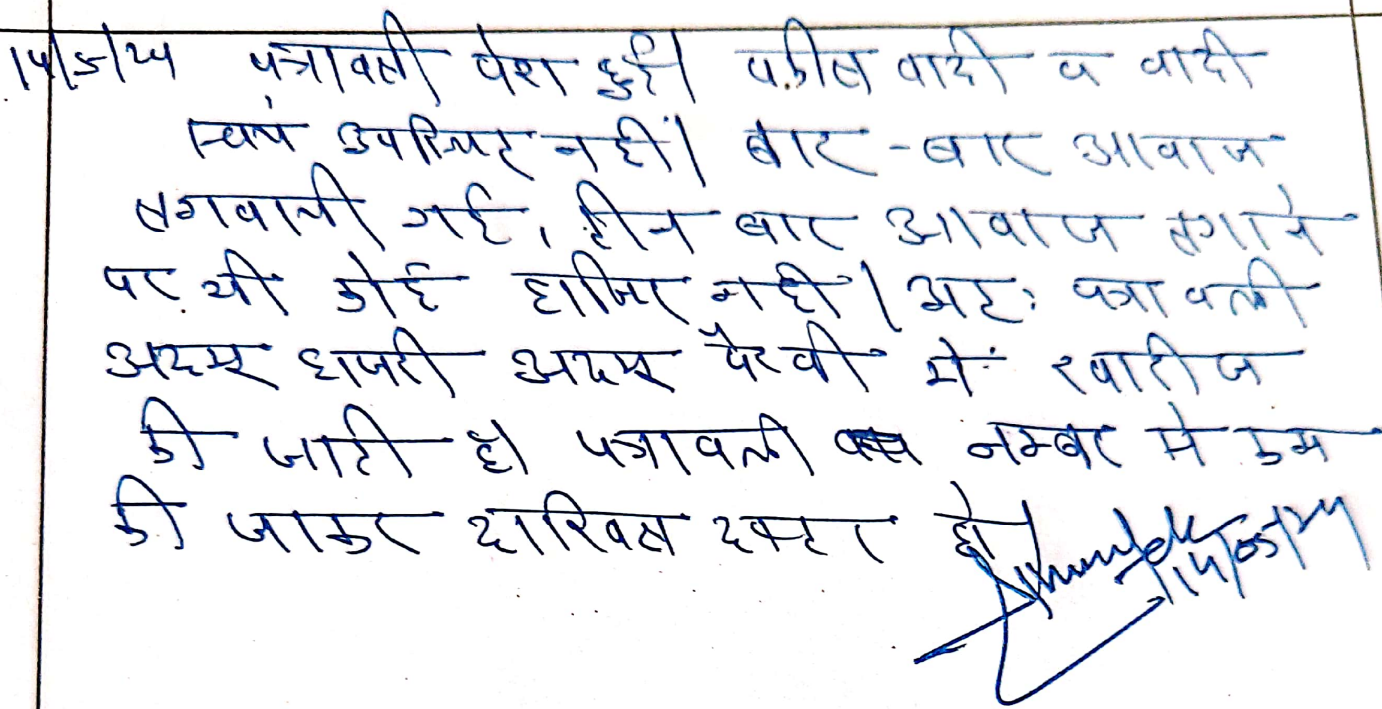 14/5/24 पत्रावली पेश हुई। वकील वादी व वादी
स्वयं उपस्थित नहीं। बार-बार आवाज
लगवायी गई, तीन बार आवाज लगाने
पर भी कोई हाजिर नहीं। अतः पत्रावली
अदम हाजरी अदम पैरवी में खारीज
की जाती है। पत्रावली नम्बर से कम
की जाकर दाखिल दफ्तर हो।
14/05/24